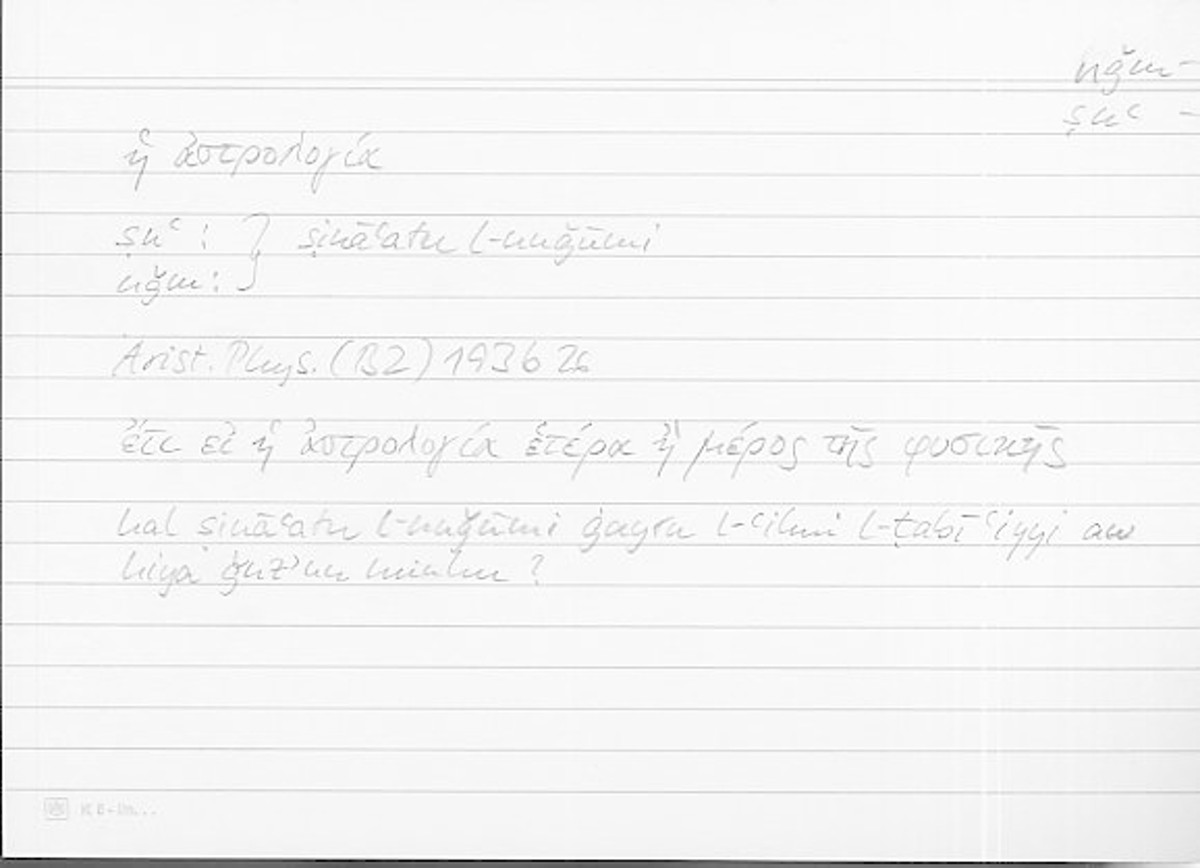 nǧm-
ṣnʿ -
ἡ ἀστρολογία
ṣnʿ : } ṣināʿatu l-nuǧūmi
nǧm :
Arist. Phys. (B2) 193b26
ἔτι εἰ ἡ ἀστρολογία ἑτέρα ἢ μέρος τῆς φυσικῆς
hal ṣināʿatu l-nuǧūmi ġayru l-ʿilmi l-ṭabīʿiyyi aw
hiya ǧuzʾun minhu ?